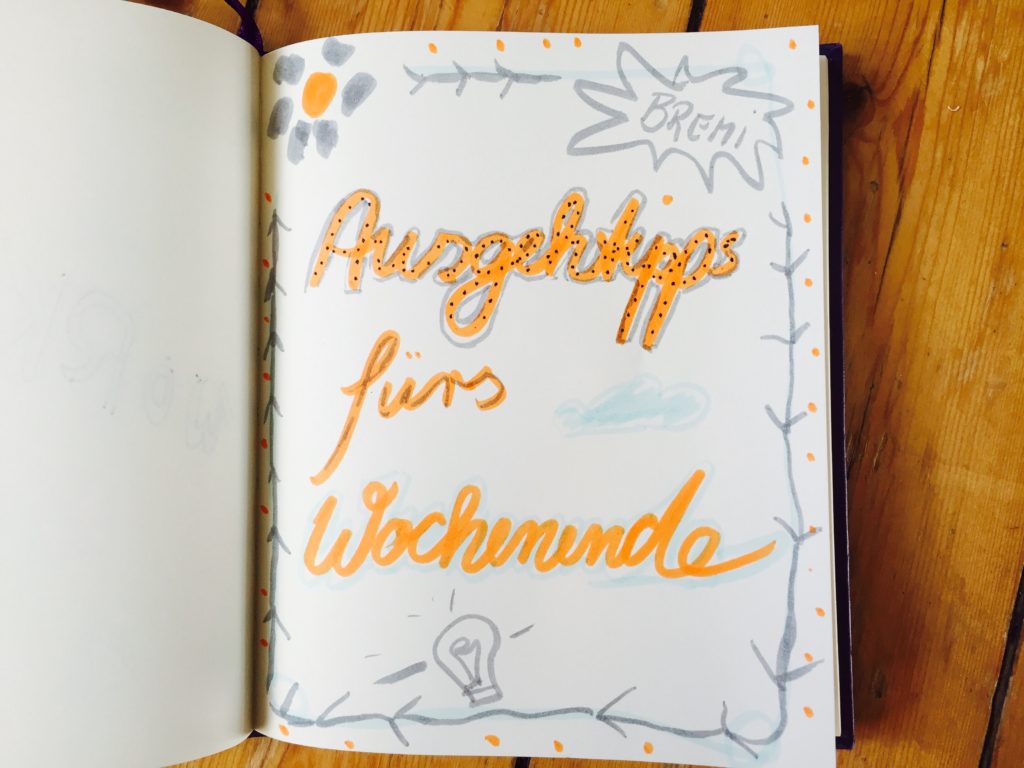 BREMI
Ausgehtipps
fürs
Wochenende